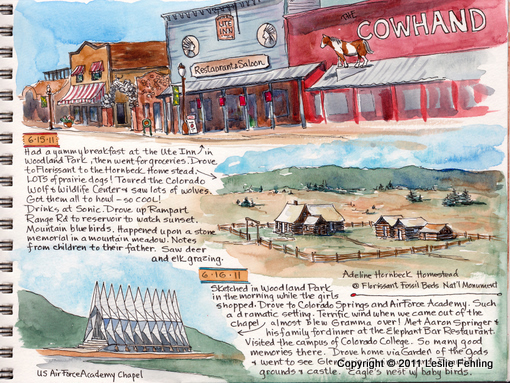 THE
COWHAND
UTE
INN
Restaurant & Saloon
6-15-11
Had a yummy breakfast at the Ute Inn in
Woodland Park, then went for groceries. Drove
to Florissant to the Hornbeck Homestead
LOTS of prairie dogs! Toured the Colorado
Wolf & Wildlife Center & saw lots of wolves.
Got them all to howl - so COOL!
Drinks at Sonic. Drove up Rampart
Range Rd to reservoir to watch sunset.
Mountain bluebirds. Happened upon a stone
memorial in a mountain meadow. Notes
from children to their father. Saw deer
and elk grazing.
Adeline Hornbeck Homestead
@ Florissant Fossil Beds Nat'l Monument
6-16-11
Sketched in Woodland Park
in the morning while the girls
shopped. Drove to Colorado Springs and Air Force Academy. Such
a dramatic setting. Terrific wind when we came out of the
chapel, almost blew Gramma over! Met Aaron Springer &
his family for dinner at the Elephant Bar Restaurant.
Visited the campus of Colorado College. So many good
memories there. Drove home via Garden of the Gods
& went to see Glen
grounds & castle. Eagle's nest w/ baby birds.
US Air Force Academy Chapel
Copyright © 2011 Leslie Fehling